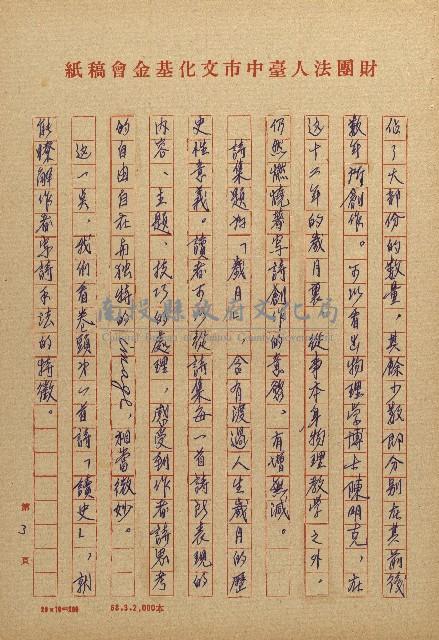 財團法人臺中市文化基金會稿紙
佔了大部份的數量，其餘少數即分別在其前後
數年所創作。可以看出物理學博士陳明克，在
這十六年的歲月裏，從事本身物理教學之外。
仍然燃燒著寫詩創作的意
有增無減。
詩集題為「歲月」，含有渡過人生歲月的歷
史性意義。讀者可從詩集每一首詩所表現的
內容、主題、技巧的處理，感受到作者詩思考
的自由自在而獨特的image，相當微妙。
這一點，我們看卷頭次一首詩「讀史」，就
能瞭解作者寫詩手法的特徵。
南投縣政府文化局
第3頁
20×10=200
68.3.2,000本